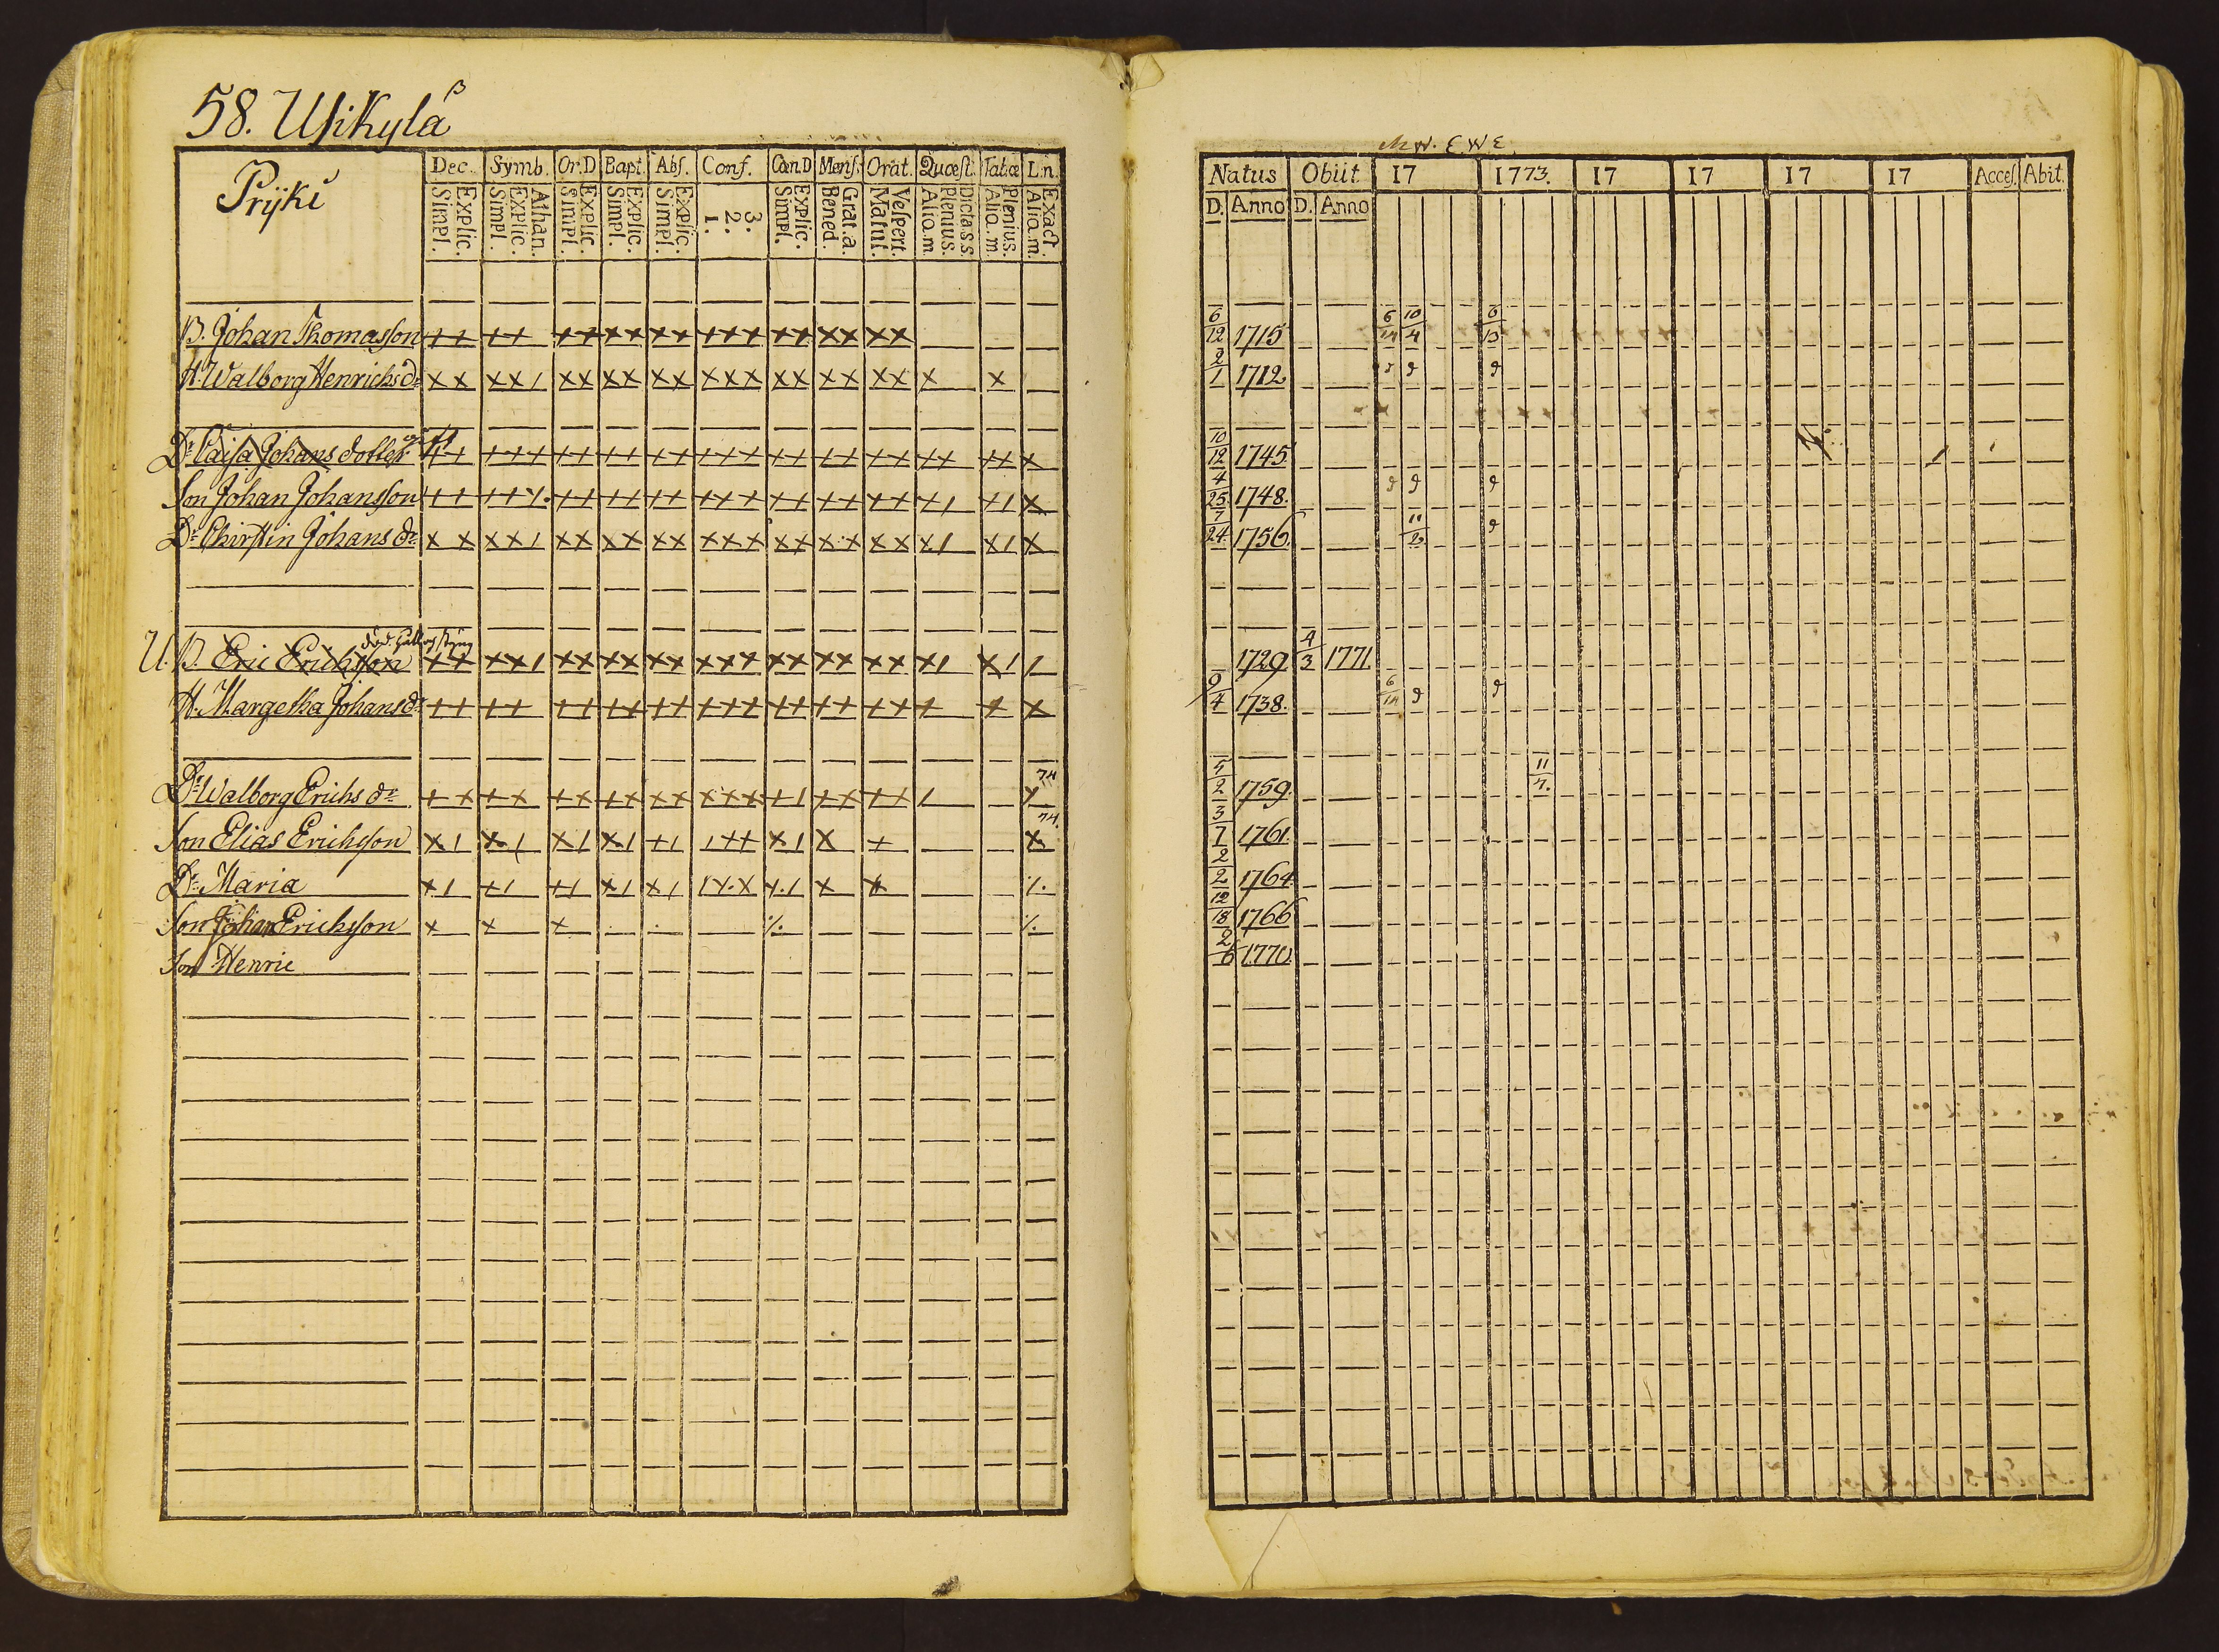 58. Usikylä B
Prÿki
Dec. Symb. Or.D Bapt. Abs. Conf. Cœn.D Mens. Orat. Quæst. Tab.œ L.n.
Simpl. Explic. Simpl. Explic. Athan. Simpl. Explic. Simpl. Explic. Simpl. Explic. 1. 2. 3. Simpl. Explic. Bened. Grat.a. Matut. Vespert. Aliq.m Plenius. Dicta s.s. Aliq.m Plenius. Aliq.m Exact.
B. Johan Thomasson ++ ++ ++ ++ ++ +++ ++ ++ ++
H. Walborg Henrichs dr. ×× ××/ ×× ×× ×× ××× ×× ×× ×× × ×
Dr. Caisa Johans dotter ++ +++ ++ ++ ++ +++ ++ ++ ++ ++ ++ ×
Son Johan Johansson ++ ++ ++ ++ ++ +++ ++ ++ ++ +/ +/ ×
Dr. Chirstin Johans dr. ×× ××/ ×× ×× ×× ××× ×× ×× ×× ×/ ×/ ×
U. B. Eric Erichsson ×× ××/ ×× ×× ×× ××× ×× ×× ×× ×/ ×/ /
H. Margetha Johans dr. ++ ++ ++ ++ ++ +++ ++ ++ ++ + + ×
74
Dr. Walborg Erichs dr. ++ ++ ++ ++ ×× ××× +/ ++ ++ /
74.
Son Elias Erichsson ×/ ×/ ×/ ×/ +/ /++ ×/ × + ×
Dr. Maria +/ +/ +/ ×/ ×/ /×× ×/ × ×
Son Johan Erichsson × × ×
Son Henric
M W. E. W E.
Natus Obiit 17 1773. 17 17 17 17 Acces. Abit.
D. Anno D. Anno
6/12 1715 6/14 10/4 6/13
2/1 1712
10/12 1745
4/25 1748.
7/24 1756
1729 4/3 1771.
9/4 1738. 6/14
5/2 1759. 11/7.
3/7 1761.
2/2 1764.
12/18 1766
2/6 1770